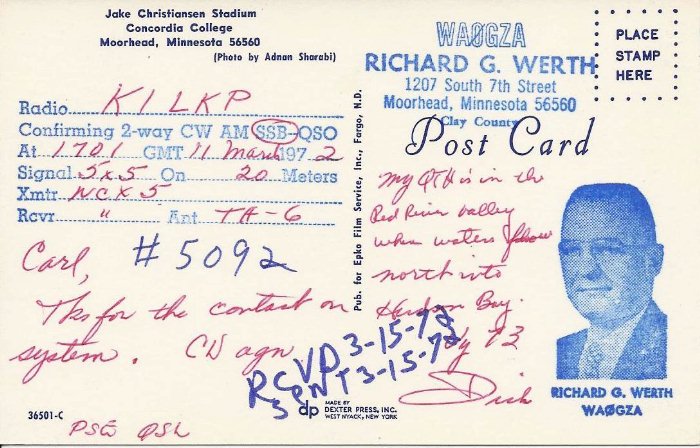 Jake Christiansen Stadium
Concordia College
Moorhead, Minnesota 56560
(Photo by Adnan Sharabi)
Radio K1LKP
Confirming 2-way CW AM SSB-QSO
At 1701 GMT 11 March 1972
Signal 5x5 On 20 Meters
Xmtr NCX5
Rcvr " Ant TA-6
Carl, #5092
Tks for the contact on
system. CU agn
36501-C
PSE QSL
Pub. for Epko Film Service, Inc., Fargo, N.D.
dp MADE BY
DEXTER PRESS, INC.
WEST NYACK, NEW YORK
WAØGZA
RICHARD G. WERTH
1207 South 7th Street
Moorhead, Minnesota 56560
Clay County
PLACE
STAMP
HERE
Post Card
My QTH is in the
Red River Valley
where waters flow
north into
Hudson Bay.
Vy 73
Dick
RCVD 3-15-72
SENT 3-15-72
RICHARD G. WERTH
WAØGZA